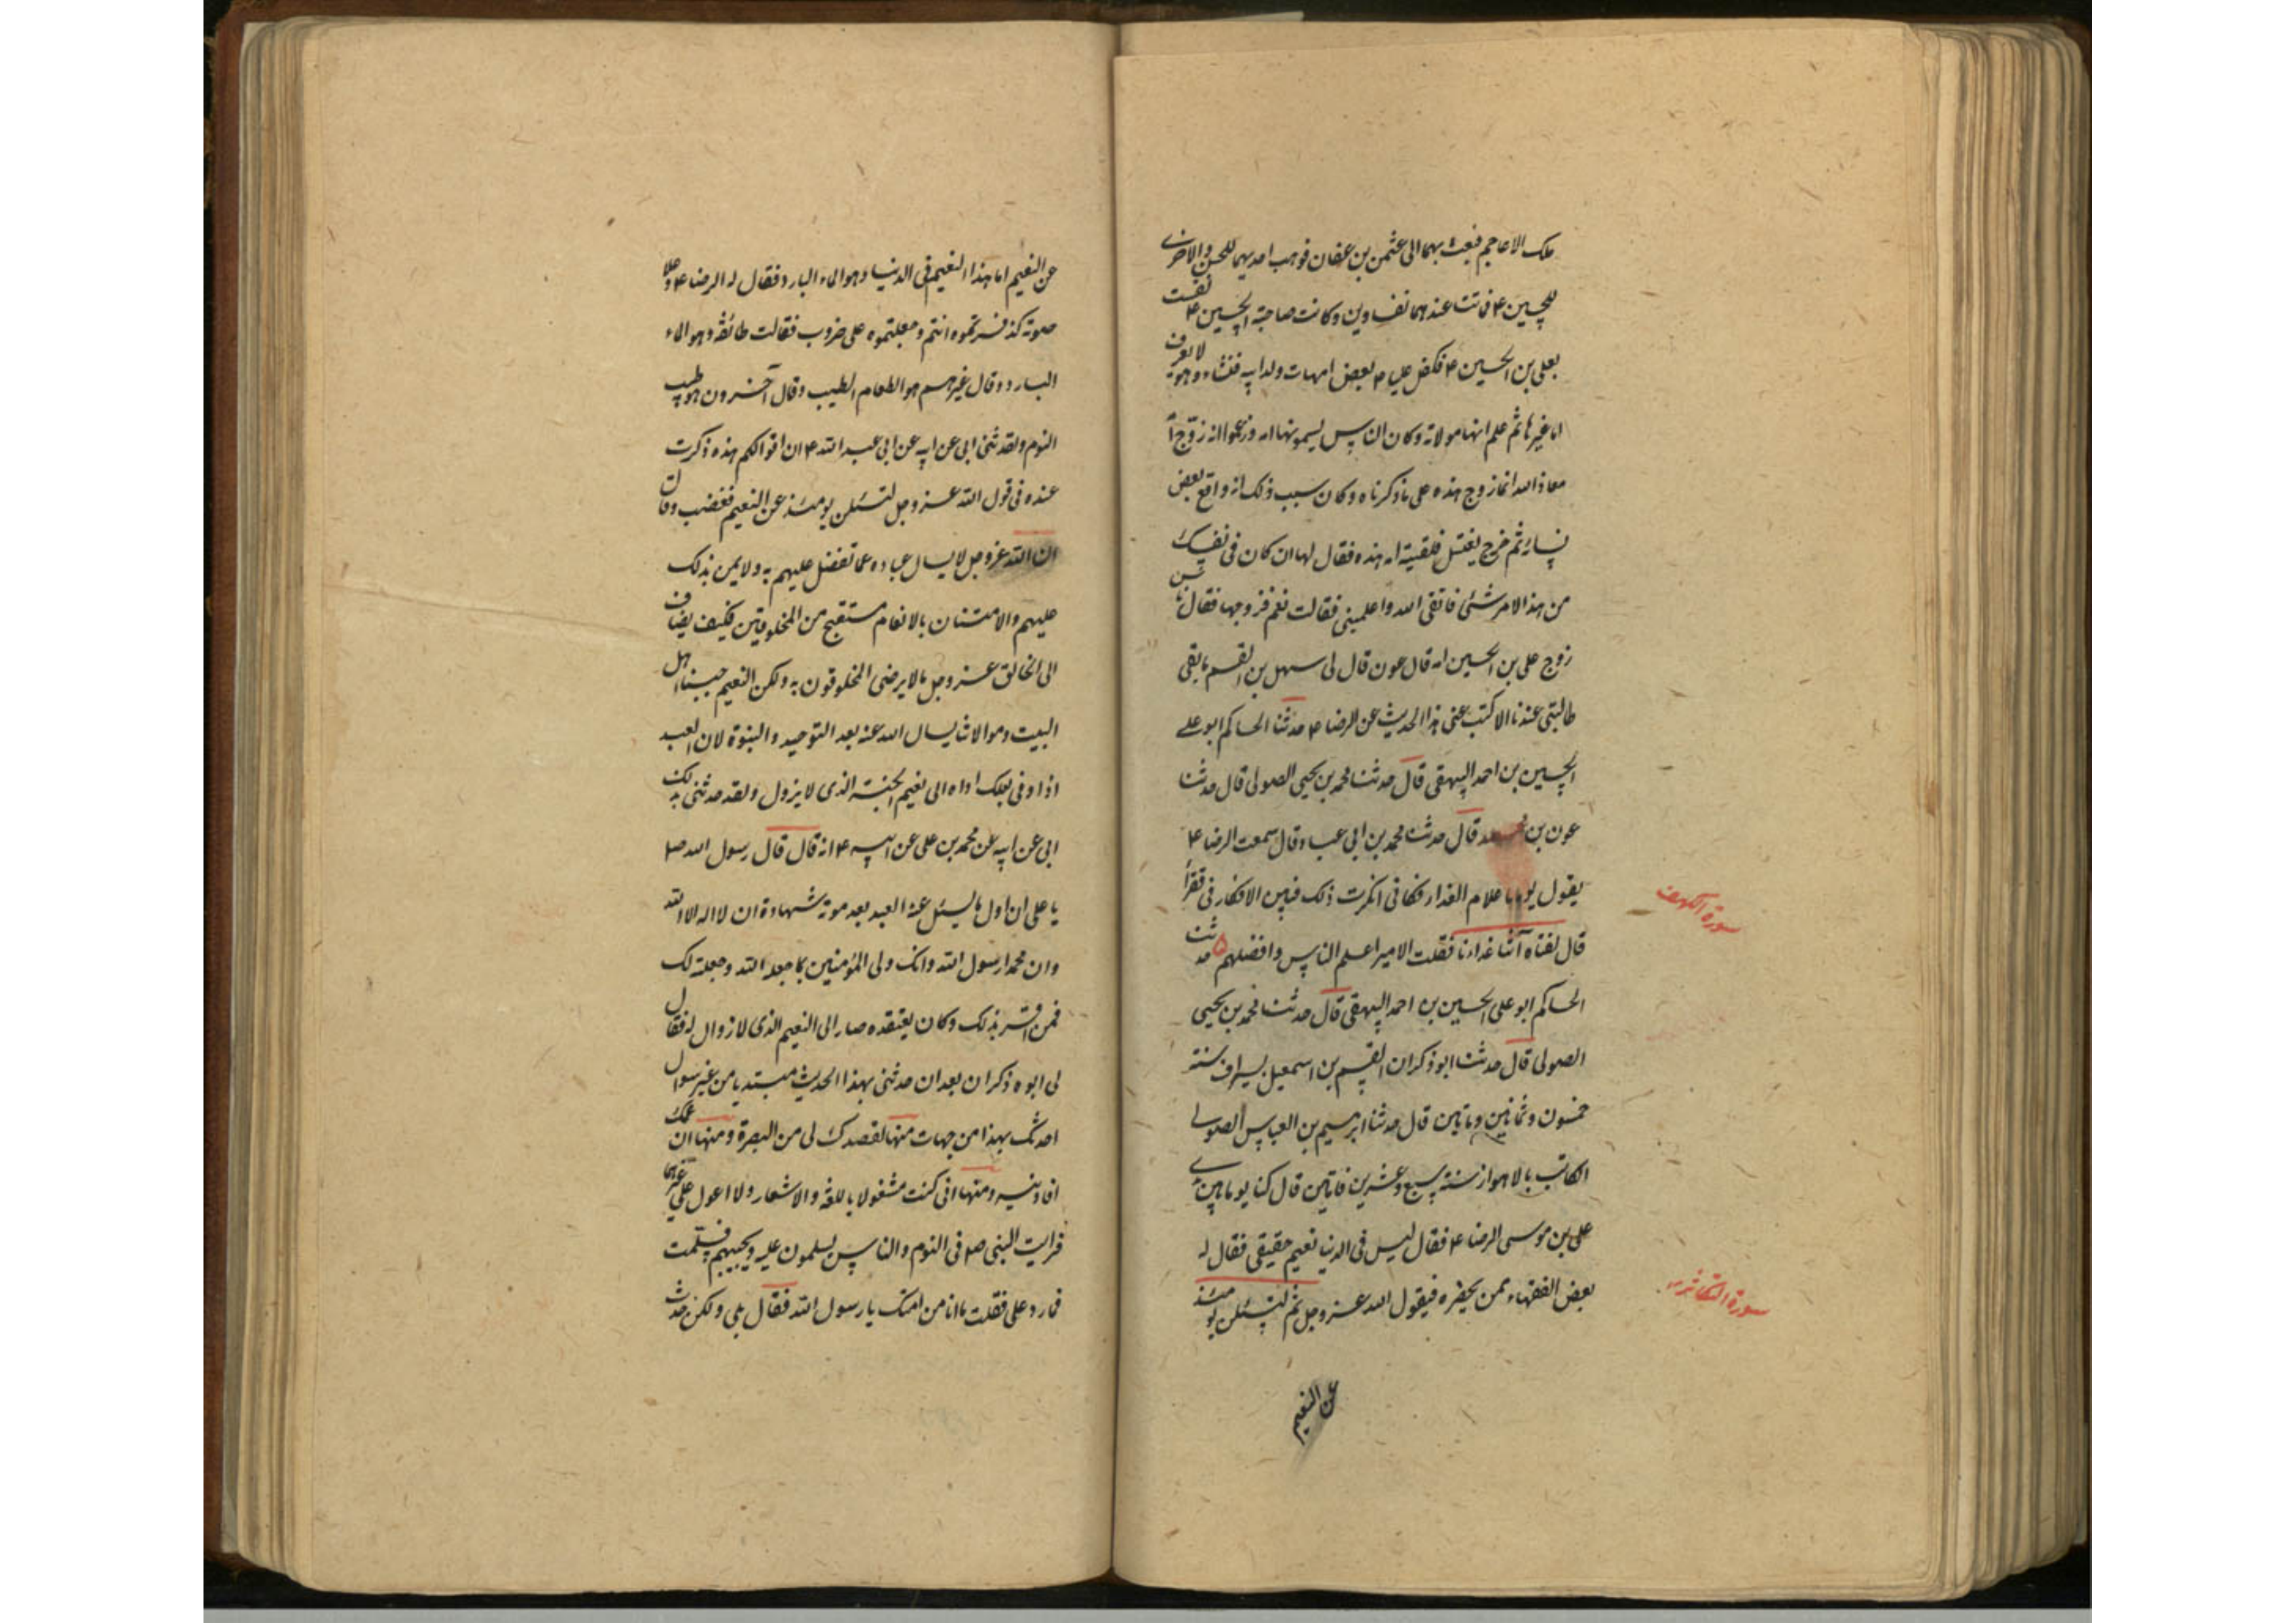 ملك الاعاجم فبعث بهما الى عثمن بن عفان فوهب احديهما للحسن والاخرى
للحسين ع فماتتا عندهما نفساوين وكانت صاحبة الحسين ع نفست
بعلي بن الحسين ع فكفل علي ع بعض امهات ولد ابيه فنشاء وهو لا يعرف
اما غيرها ثم علم انها مولاته وكان الناس يسمونها امه وزعموا انه زوج امه
معاذ الله انما زوج هذه على ما ذكرناه وكان سبب ذلك انه واقع بعض
نسائه ثم خرج يغتسل فلقيته امه هذه فقال لها ان كان في نفسك
من هذا الامر شئ فاتقى الله واعلميني فقالت نعم فزوجها فقال ناس
زوج علي بن الحسين امه قال عون قال لي سهل بن القسم ما بقي
طالبي عندنا الا كتب عني هذا الحديث عن الرضا ع حدثنا الحاكم ابو علي
الحسين بن احمد البيهقي قال حدثنا محمد بن يحيى الصولي قال حدثنا
عون بن محمد قال حدثنا محمد بن ابي عباد قال سمعت الرضا ع
يقول يوما يا غلام الغداء فكاني انكرت ذلك فبين الانكار في فقرأ
قال لفتاه آتنا غداءنا فقلت الامير اعلم الناس وافضلهم ۵ حدثنا
الحاكم ابو علي الحسين بن احمد البيهقي قال حدثنا محمد بن يحيى
الصولي قال حدثنا ابو ذكوان القسم بن اسمعيل بسيراف سنة
خمسون وثمانين وماتين قال حدثنا ابرهيم بن العباس الصولي
الكاتب بالاهواز سنة سبع وعشرين فاتين قال كنا يوما بين يدي
علي بن موسى الرضا ع فقال ليس في الدنيا نعيم حقيقي فقال له
بعض الفقهاء ممن يحضره فيقول الله عز وجل ثم لتسئلن يومئذ
عن النعيم
سورة الكهف
سورة التكاثر
عن النعيم اما هذا النعيم في الدنيا وهو الماء البارد فقال له الرضا ع وعلا
صوته كذا فسرتموه انتم وجعلتموه على ضروب فقالت طائفة هو الماء
البارد وقال غيرهم هو الطعام الطيب وقال آخرون هو طيب
النوم ولقد ثني ابي عن ابيه عن ابي عبد الله ع ان اقوالكم هذه ذكرت
عنده في قول الله عز وجل لتسئلن يومئذ عن النعيم فغضب وقال
ان الله عز وجل لا يسال عباده عما تفضل عليهم به ولا يمن بذلك
عليهم والامتنان بالانعام مستقبح من المخلوقين فكيف يضاف
الى الخالق عز وجل ما لا يرضى المخلوقون به ولكن النعيم حبنا اهل
البيت وموالاتنا يسال الله عنه بعد التوحيد والنبوة لان العبد
اذا وفى بذلك اداه الى نعيم الجنة الذي لا يزول ولقد حدثني بذلك
ابي عن ابيه عن محمد بن علي عن ابيه ع انه قال قال رسول الله ص
يا علي ان اول ما يسئل عنه العبد بعد موته شهادة ان لا اله الا الله
وان محمدا رسول الله وانك ولي المؤمنين بما جعله الله وجعلته لك
فمن اقر بذلك وكان يعتقده صار الى النعيم الذي لا زوال له فقال
لي ابوه ذكران بعد ان حدثني بهذا الحديث مبتديا من غير سوال
احدثك بهذا من جهات منها لقصدك لي من البصرة ومنها ان عمك
افادنيه ومنها اني كنت مشغولا باللغة والاشعار ولا اعول على غيرهما
فرايت النبي ص في النوم والناس يسلمون عليه ويجيبهم فسلمت
فما رد علي فقلت ما انا من امتك يا رسول الله فقال بلى ولكن حدث